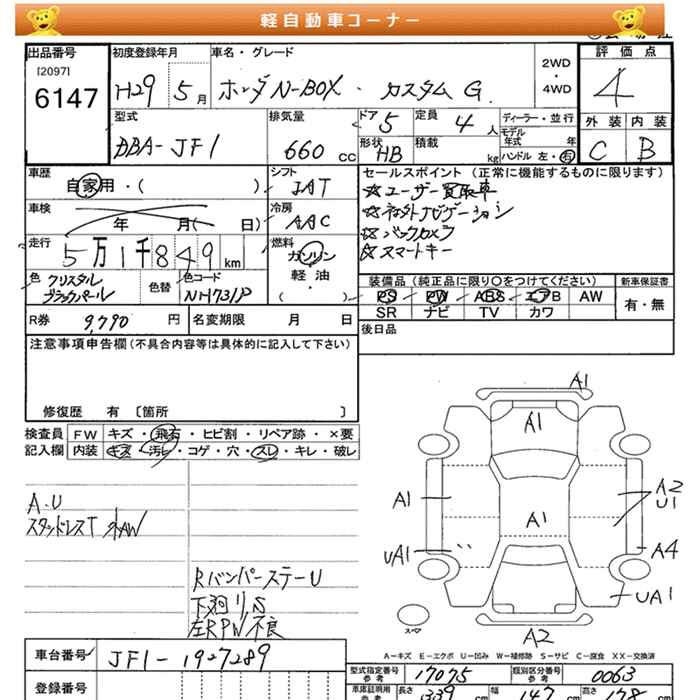 軽自動車コーナー
出品番号 初度登録年月 車名・グレード 2WD・4WD 評価点
[2097]
6147 H29 5月 ホンダ N-BOX・カスタム G 4
型式 排気量 ドア 定員 ディーラー・並行 外装 内装
DBA-JF1 660 CC 5 4人 モデル年式 年 C B
形状 積載 ハンドル 左・右
HB kg
車歴 シフト セールスポイント(正常に機能するものに限ります)
自家用・( ) IAT ☆ユーザー買取車
車検 冷房 ☆社外ナビゲーション
年 月( 日) AAC ☆バックカメラ
走行 燃料 ☆スマートキー
5万1千849km ガソリン
軽・油
( )
色 クリスタルブラックパール 色替 色コード NH731P
装備品(純正品に限り○をつけてください) 新車保証書
PS PW ABS エアB AW 有・無
SR ナビ TV カワ
R券 9,790円 名変期限 月 日 後日品
注意事項申告欄(不具合内容等は具体的に記入して下さい)
修復歴 有 〔箇所 〕
検査員 FW キズ・飛石・ヒビ割・リペア跡・×要
記入欄 内装 キズ・汚レ・コゲ・穴・スレ・キレ・破レ
A.U
スタッドレスT 外AW
RバンパーステーU
下廻り、S
左RPW不良
A1
A1
A1
A2
U1
A1
UA1
A4
UA1
A2
スペア
A-キズ E-エクボ U-凹み W-補修跡 S-サビ C-腐食 XX-交換済
車台番号 JF1-1927289
型式指定番号 参考 17075 類別区分番号 参考 0063
登録番号
車庫証明用 参考 長さ 339cm 幅 147cm 高さ 178cm